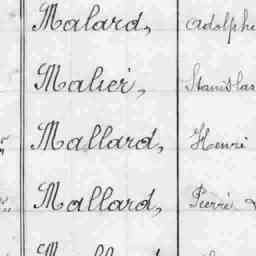 Malard, Adolphe
Malier, Stanislas
Mallard, Henri
Mallard, Pierre